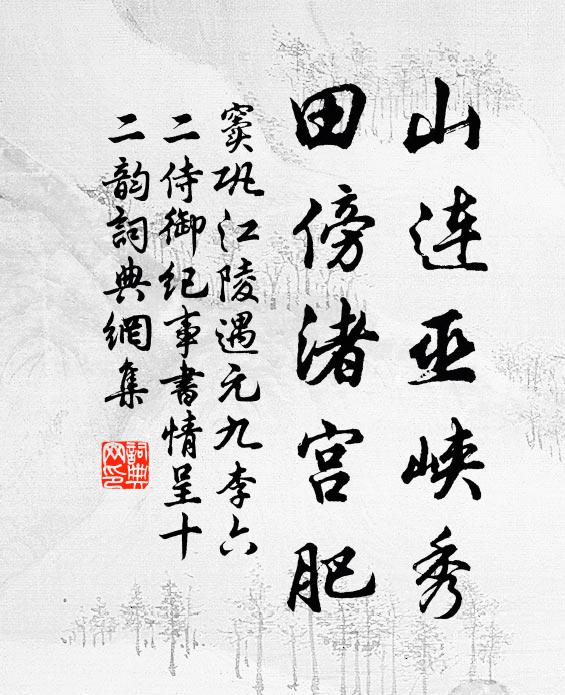 山连巫峡秀
田傍渚宫肥
窦巩江陵遇元九李六
二侍御纪事书情呈十
二韵词典网集
詞典
网印